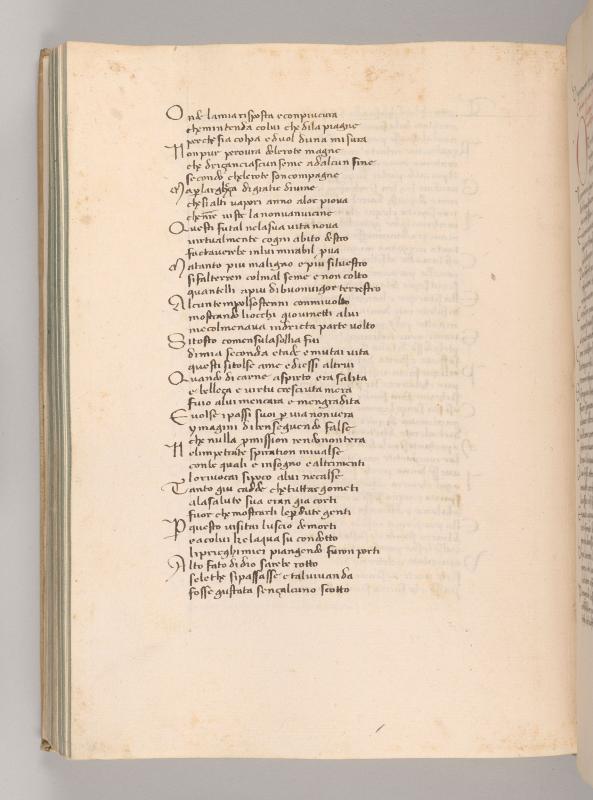 Onde lamia risposta e conpiu cura
che mintenda colui che dila piagne
perche sia colpa e duol duna misura
Non pur perovra delerote magne
che driçan ciascun seme adalcun fine
secondo che lerote son compagne
Ma per largheça di gratie divine
che si alti vapori anno alor piova
che nostre viste la non van vicine
Questi fu tal nela sua vita nova
virtualmente cogni abito destro
facto averebe in lui mirabil prova
Ma tanto piu maligno e piu silvestro
si fa l terren col mal seme e non colto
quantelli a piu di buon vigor terrestro
Alcun tempo l sostenni con mi volto
mostrando liocchi giovinetti alui
meco l menava indricta parte volto
Si tosto come nsula soglia fui
di mia seconda etade e mutai vita
questi si tolse ame e diessi altrui
Quando di carne a spirto era salita
e belleça e virtu cresciuta mera
fuio alui men cara e men gradita
E volse i passi suoi per via non vera
ymagini di ben seguendo false
che nulla promission rendono ntera
Ne limpetrare spiration mi valse
con le quali e in sogno e altrimenti
lo rivocai si poco alui ne calse
Tanto giu cadde che tutti argomenti
ala salute sua eran gia corti
fuor che mostrarli le perdute genti
Per questo visitai luscio de morti
e a colui che la qua su condotto
li prieghi miei piangendo furon porti
Alto fato di dio sarebe rotto
se lethe si passasse e tal vivanda
fosse gustata sença alcuno scotto